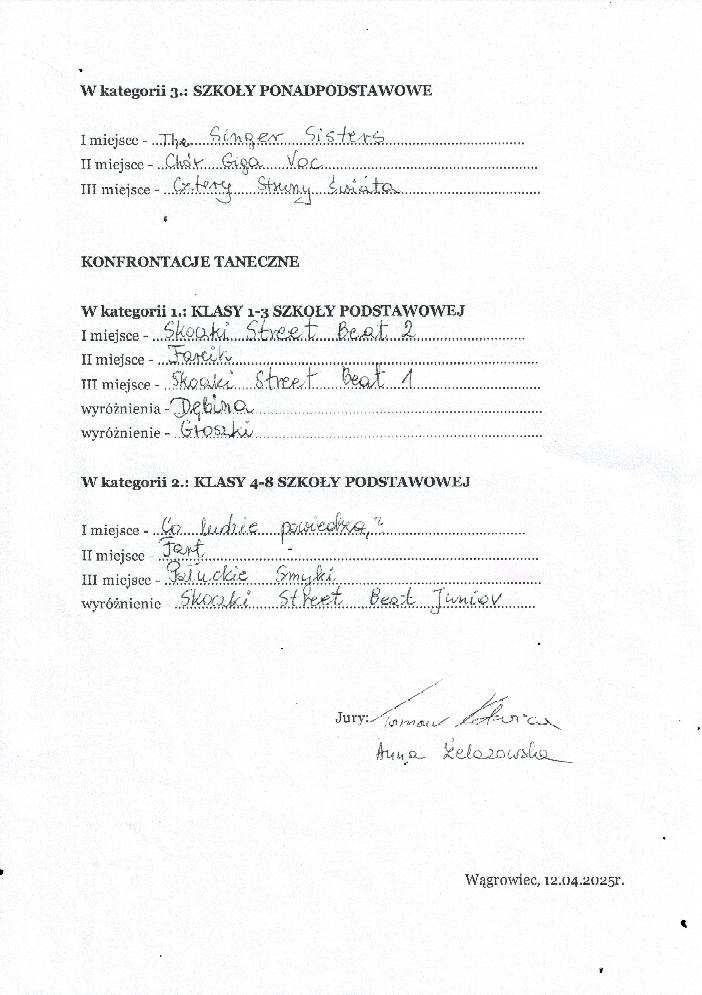 W kategorii 3.: SZKOŁY PONADPODSTAWOWE
I miejsce - The Singer Sisters
II miejsce - Chór Giga Voc
III miejsce - Cztery Struny Świata
KONFRONTACJE TANECZNE
W kategorii 1.: KLASY 1-3 SZKOŁY PODSTAWOWEJ
I miejsce - Skoczki Street Beat 2
II miejsce - Farcik
III miejsce - Skoczki Street Beat 1
wyróżnienia - Dębina
wyróżnienie - Groszki
W kategorii 2.: KLASY 4-8 SZKOŁY PODSTAWOWEJ
I miejsce - Co ludzie powiedzą?
II miejsce Fart
III miejsce - Pałuckie Smyki
wyróżnienie Skoczki Street Beat Junior
Jury:
Anna Żelazowska
Wągrowiec, 12.04.2025r.